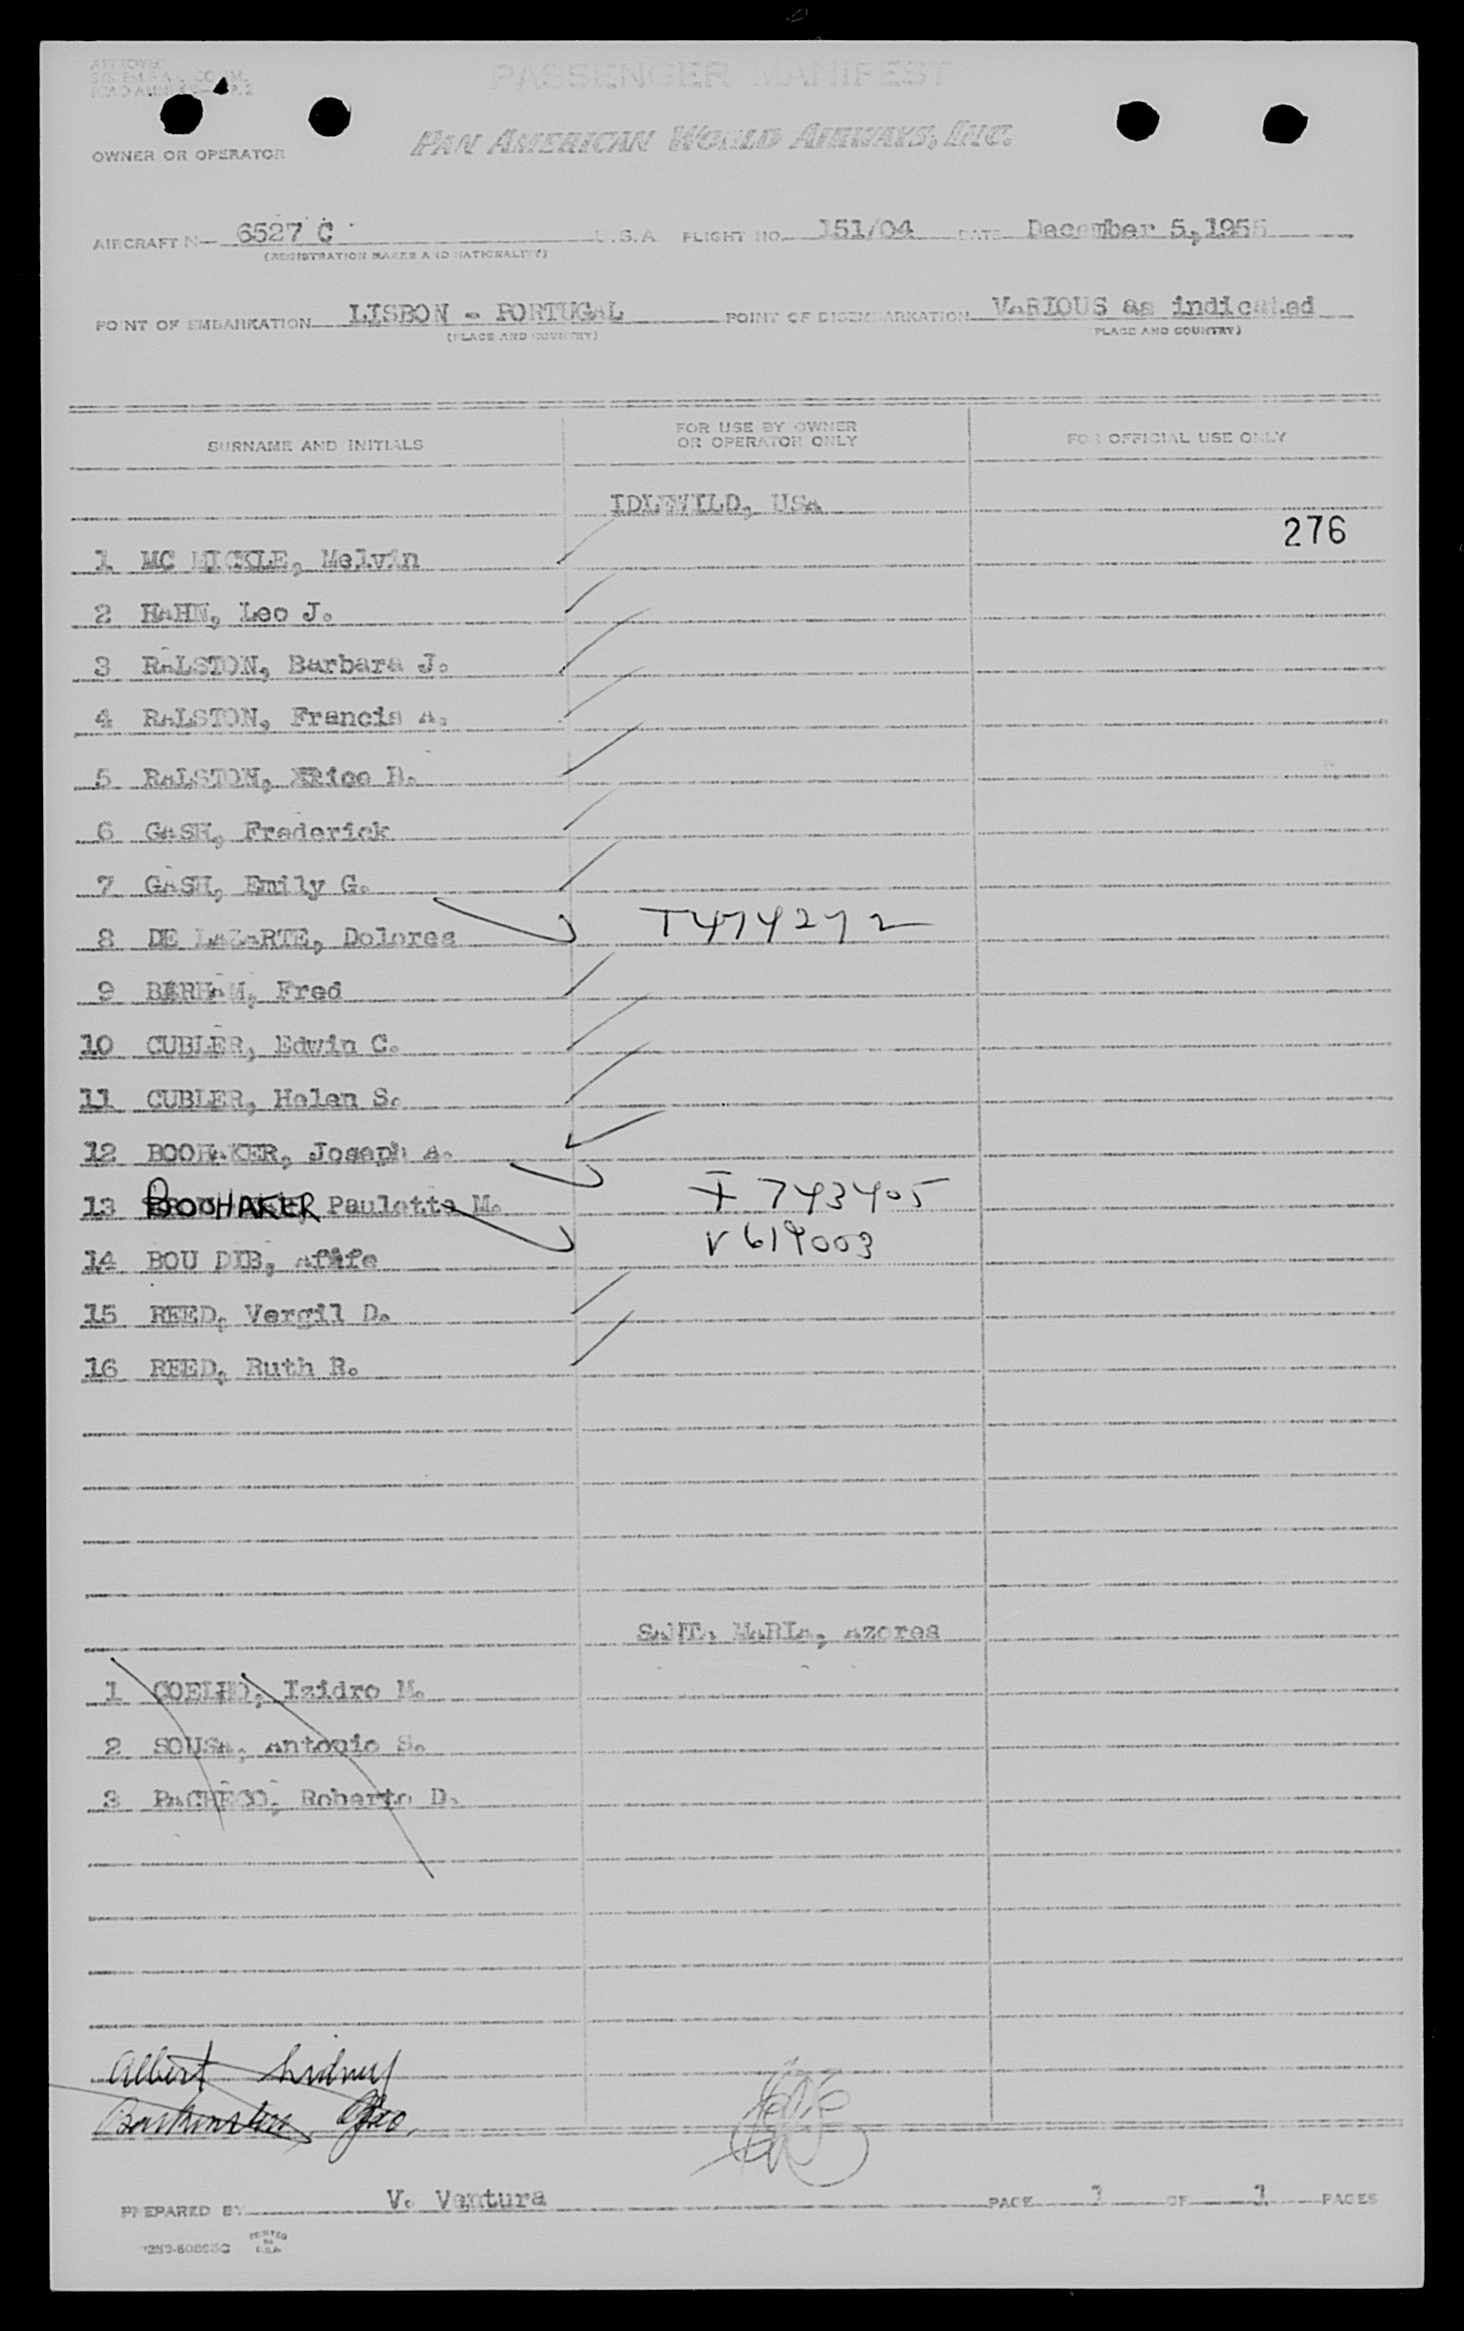 APPROVED
PASSENGER MANIFEST
OWNER OR OPERATOR PAN AMERICAN WORLD AIRWAYS, INC.
AIRCRAFT N— 6527 C U.S.A. FLIGHT NO. 151/04 DATE December 5, 1955
(REGISTRATION MARKS AND NATIONALITY)
POINT OF EMBARKATION LISBON - PORTUGAL POINT OF DISEMBARKATION VARIOUS as indicated
(PLACE AND COUNTRY) (PLACE AND COUNTRY)
SURNAME AND INITIALS FOR USE BY OWNER OR OPERATOR ONLY FOR OFFICIAL USE ONLY
IDLEWILD, USA
276
1 MC MICKLE, Melvin
2 HAHN, Leo J.
3 RALSTON, Barbara J.
4 RALSTON, Francis A.
5 RALSTON, B.
6 GASH, Frederick
7 GASH, Emily G.
8 DE LAZARTE, Dolores T474272
9 BARHAM, Fred
10 CUBLER, Edwin C.
11 CUBLER, Helen S.
12 BOOHAKER, Joseph A.
13 BOOHAKER Paulette M. I 743405
14 BOU DIB, Afife V 619003
15 REED, Vergil D.
16 REED, Ruth R.
SANTA MARIA, Azores
1 COELHO, Izidro M.
2 SOUSA, Antonio S.
3 PACHECO, Roberto D.
Albert Sidney
Geo.
PREPARED BY V. Ventura PAGE 1 OF 1 PAGES
PRINTED
IN
U.S.A.